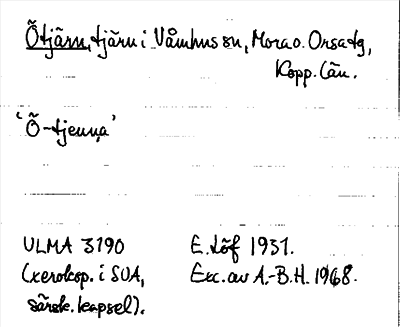 Õtjärn, tjärn i Våmhus sn, Mora o. Orsa tg,
Kopp. län.
'Õ-tjenṇa'
ULMA 3190 E. Löf 1931.
(xerokop. i SOA, Exc. av A.-B.H. 1968.
särsk. kapsel).